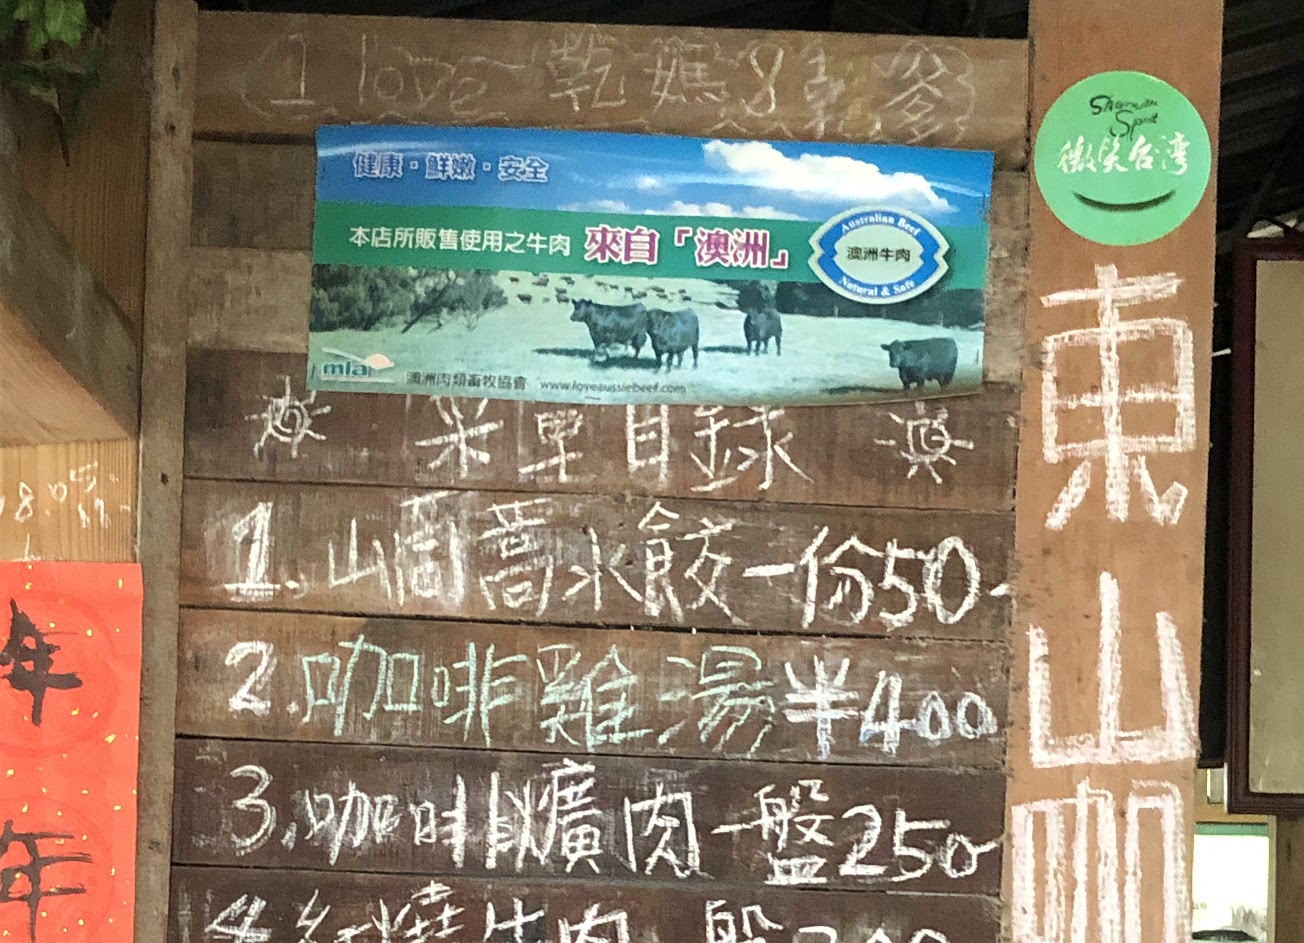 I love 乾媽 & 乾爹
健康・鮮嫩・安全
本店所販售使用之牛肉 來自「澳洲」
Australian Beef
澳洲牛肉
Natural & Safe
mla 澳洲肉類畜牧協會 www.loveaussiebeef.com
菜單目錄
1.山茼蒿水餃一份50
2.咖啡雞湯半400
3.咖啡爌肉一盤250
4.紅燒牛肉
微笑台灣
東山咖
年
年